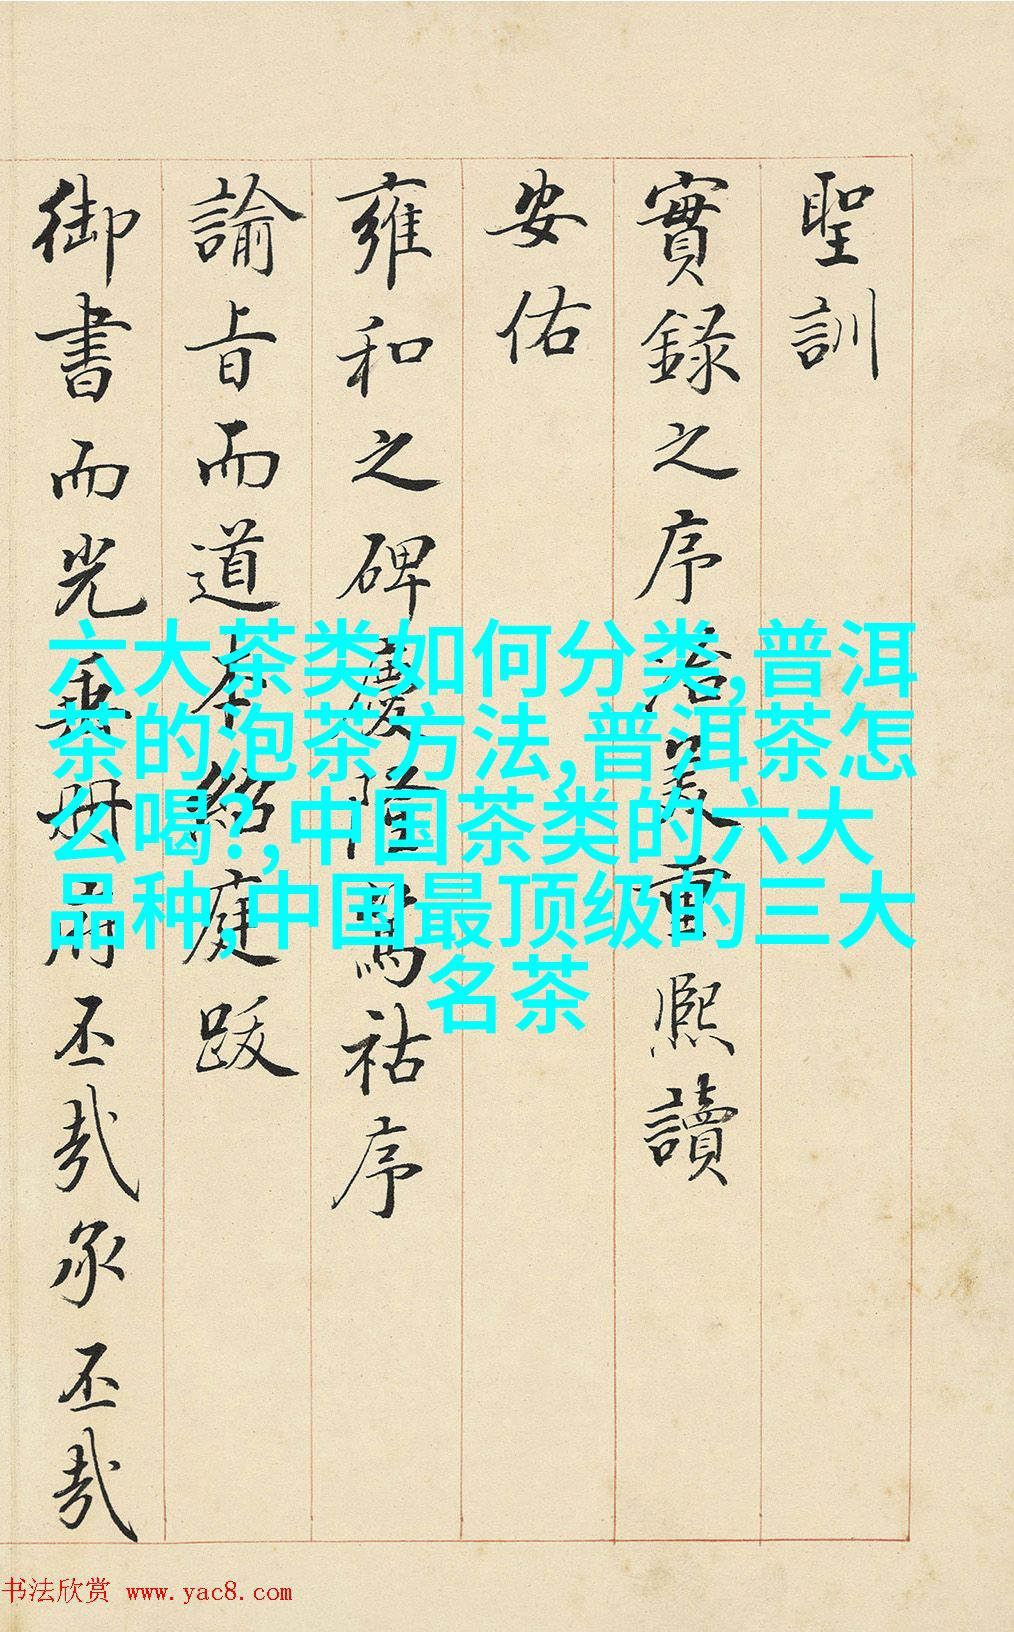 聖訓
實錄之序美重熙讀
安佑
雍和之碑慶隆篤祜序
諭旨而道本紹庭跋
御書而光垂册府丕哉承丕哉
六大茶类如何分类,普洱
茶的泡茶方法,普洱茶怎
么喝?,中国茶类的六大
品种,中国最顶级的三大
名茶
书法欣赏 www.yac8.com